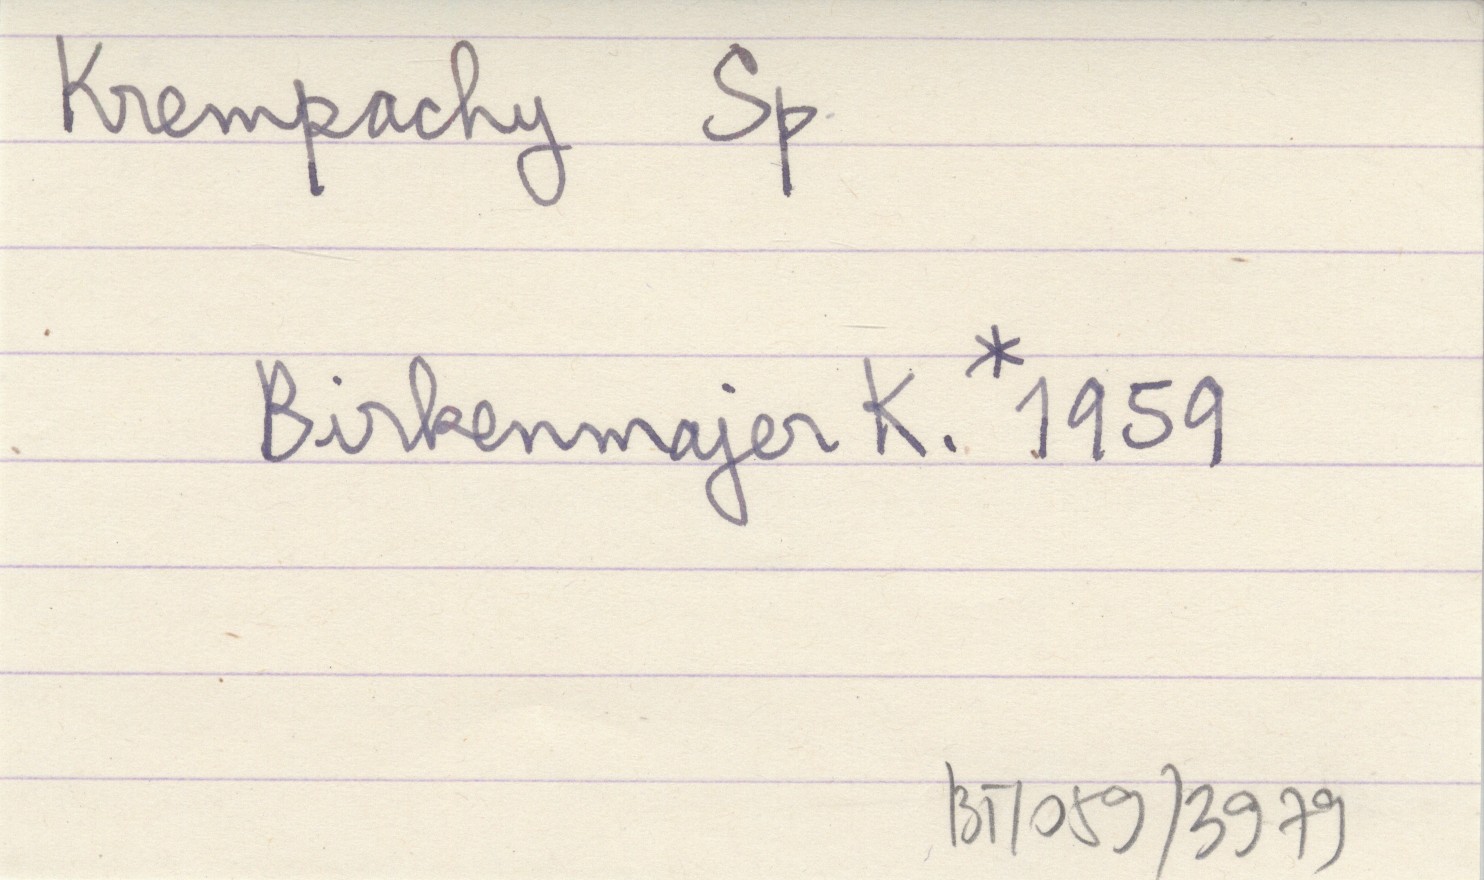 Krempachy Sp.
Birkenmajer K.* 1959
BT/059/3979